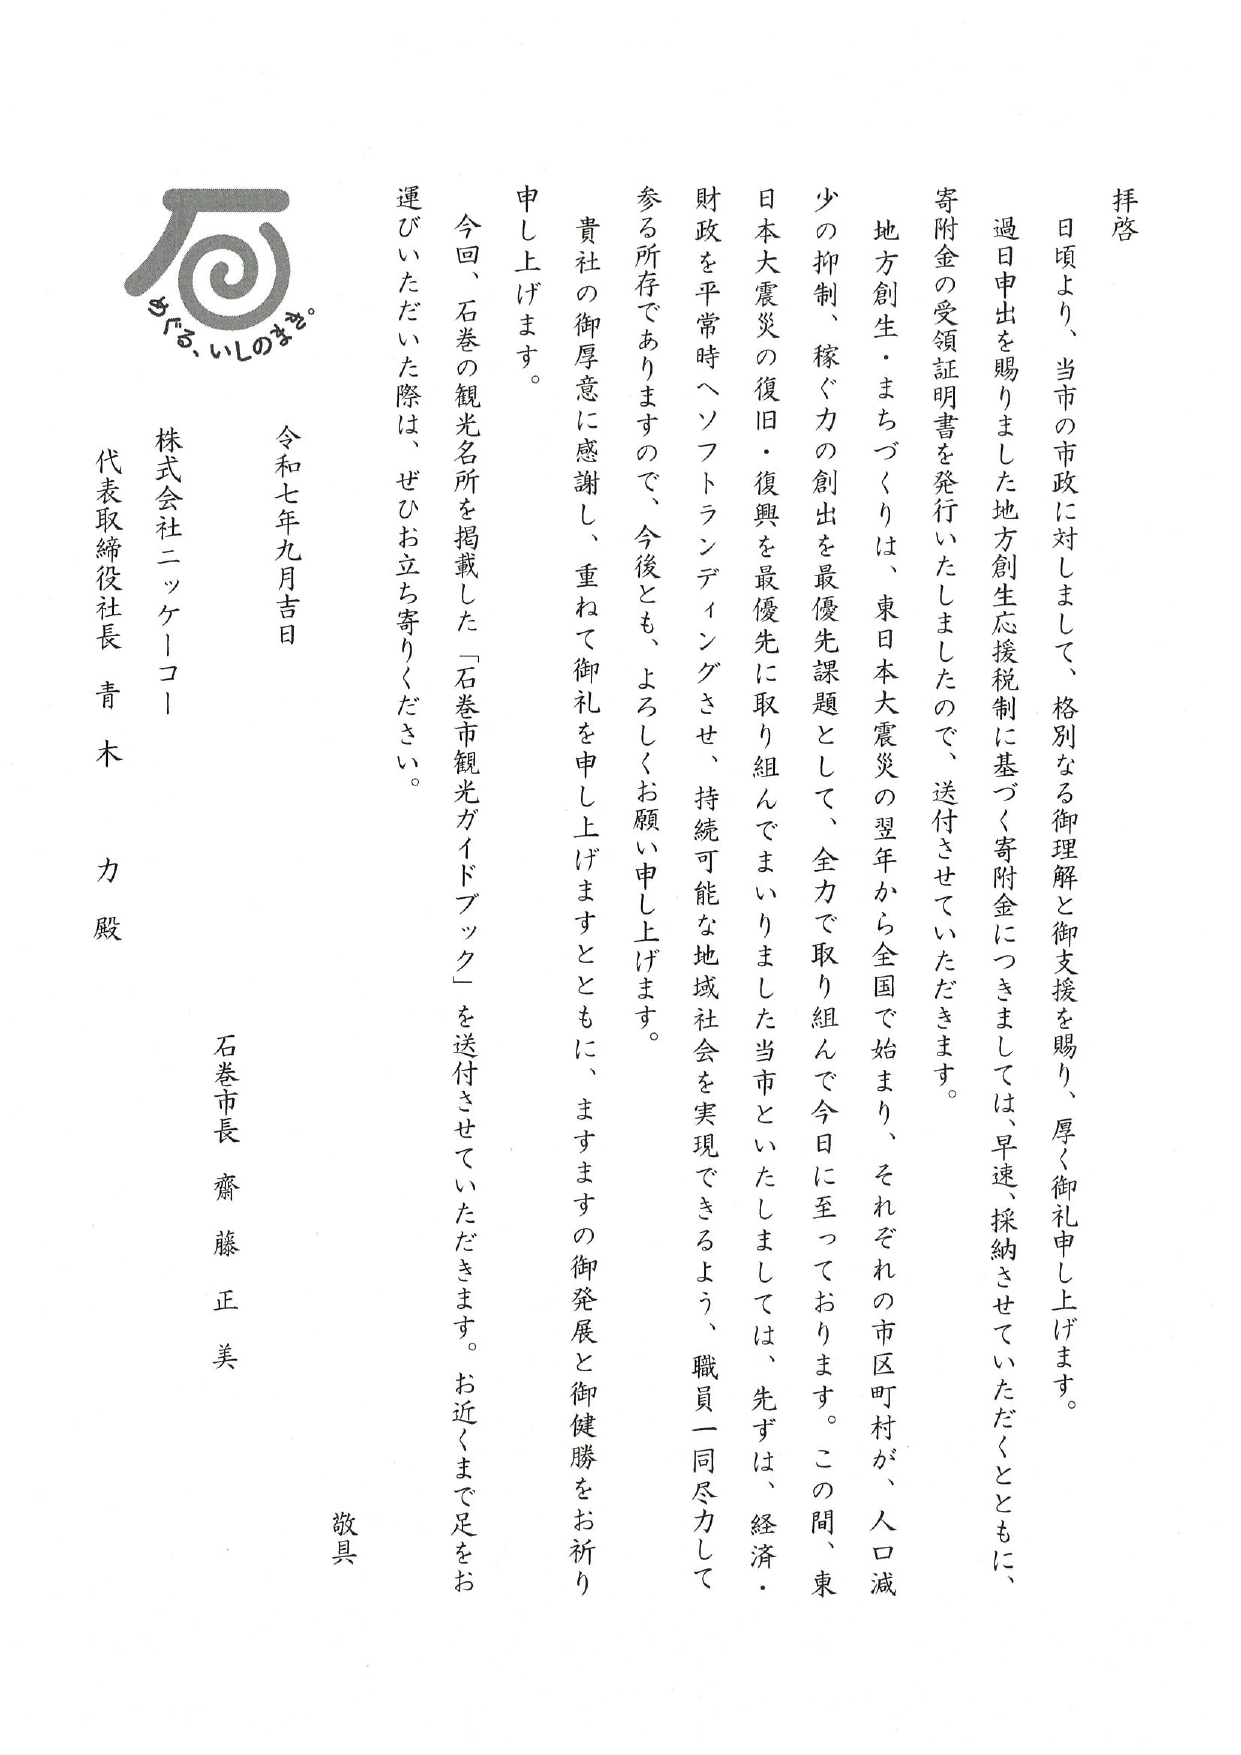 拝啓
日頃より、当市の市政に対しまして、格別なる御理解と御支援を賜り、厚く御礼申し上げます。
過日申出を賜りました地方創生応援税制に基づく寄附金につきましては、早速、採納させていただくとともに、
寄附金の受領証明書を発行いたしましたので、送付させていただきます。
地方創生・まちづくりは、東日本大震災の翌年から全国で始まり、それぞれの市区町村が、人口減
少の抑制、稼ぐ力の創出を最優先課題として、全力で取り組んで今日に至っております。この間、東
日本大震災の復旧・復興を最優先に取り組んでまいりました当市といたしましては、先ずは、経済・
財政を平常時へソフトランディングさせ、持続可能な地域社会を実現できるよう、職員一同尽力して
参る所存でありますので、今後とも、よろしくお願い申し上げます。
貴社の御厚意に感謝し、重ねて御礼を申し上げますとともに、ますますの御発展と御健勝をお祈り
申し上げます。
今回、石巻の観光名所を掲載した「石巻市観光ガイドブック」を送付させていただきます。お近くまで足をお
運びいただいた際は、ぜひお立ち寄りください。
敬具
令和七年九月吉日
石巻市長 齋藤正美
株式会社ニッケーコー
代表取締役社長 青木 力 殿
石
めぐる、いしのまき。